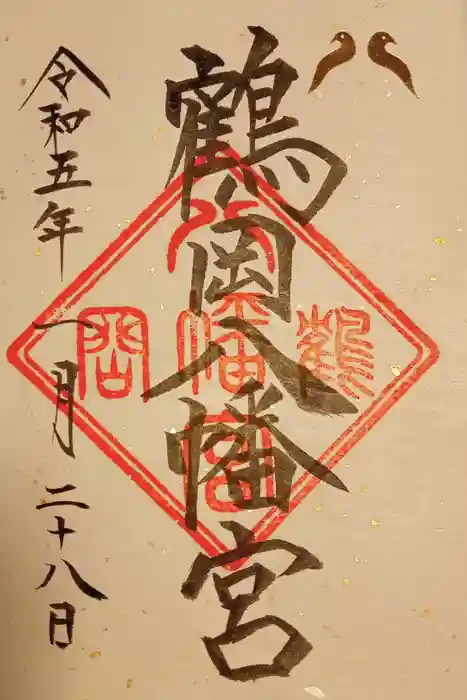 鶴岡八幡宮
鶴岡
八幡宮
令和五年
一月
二十八日